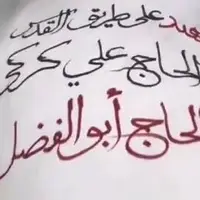 شهيد على طريق القدس
الحاج علي كركي
الحاج أبو الفضل